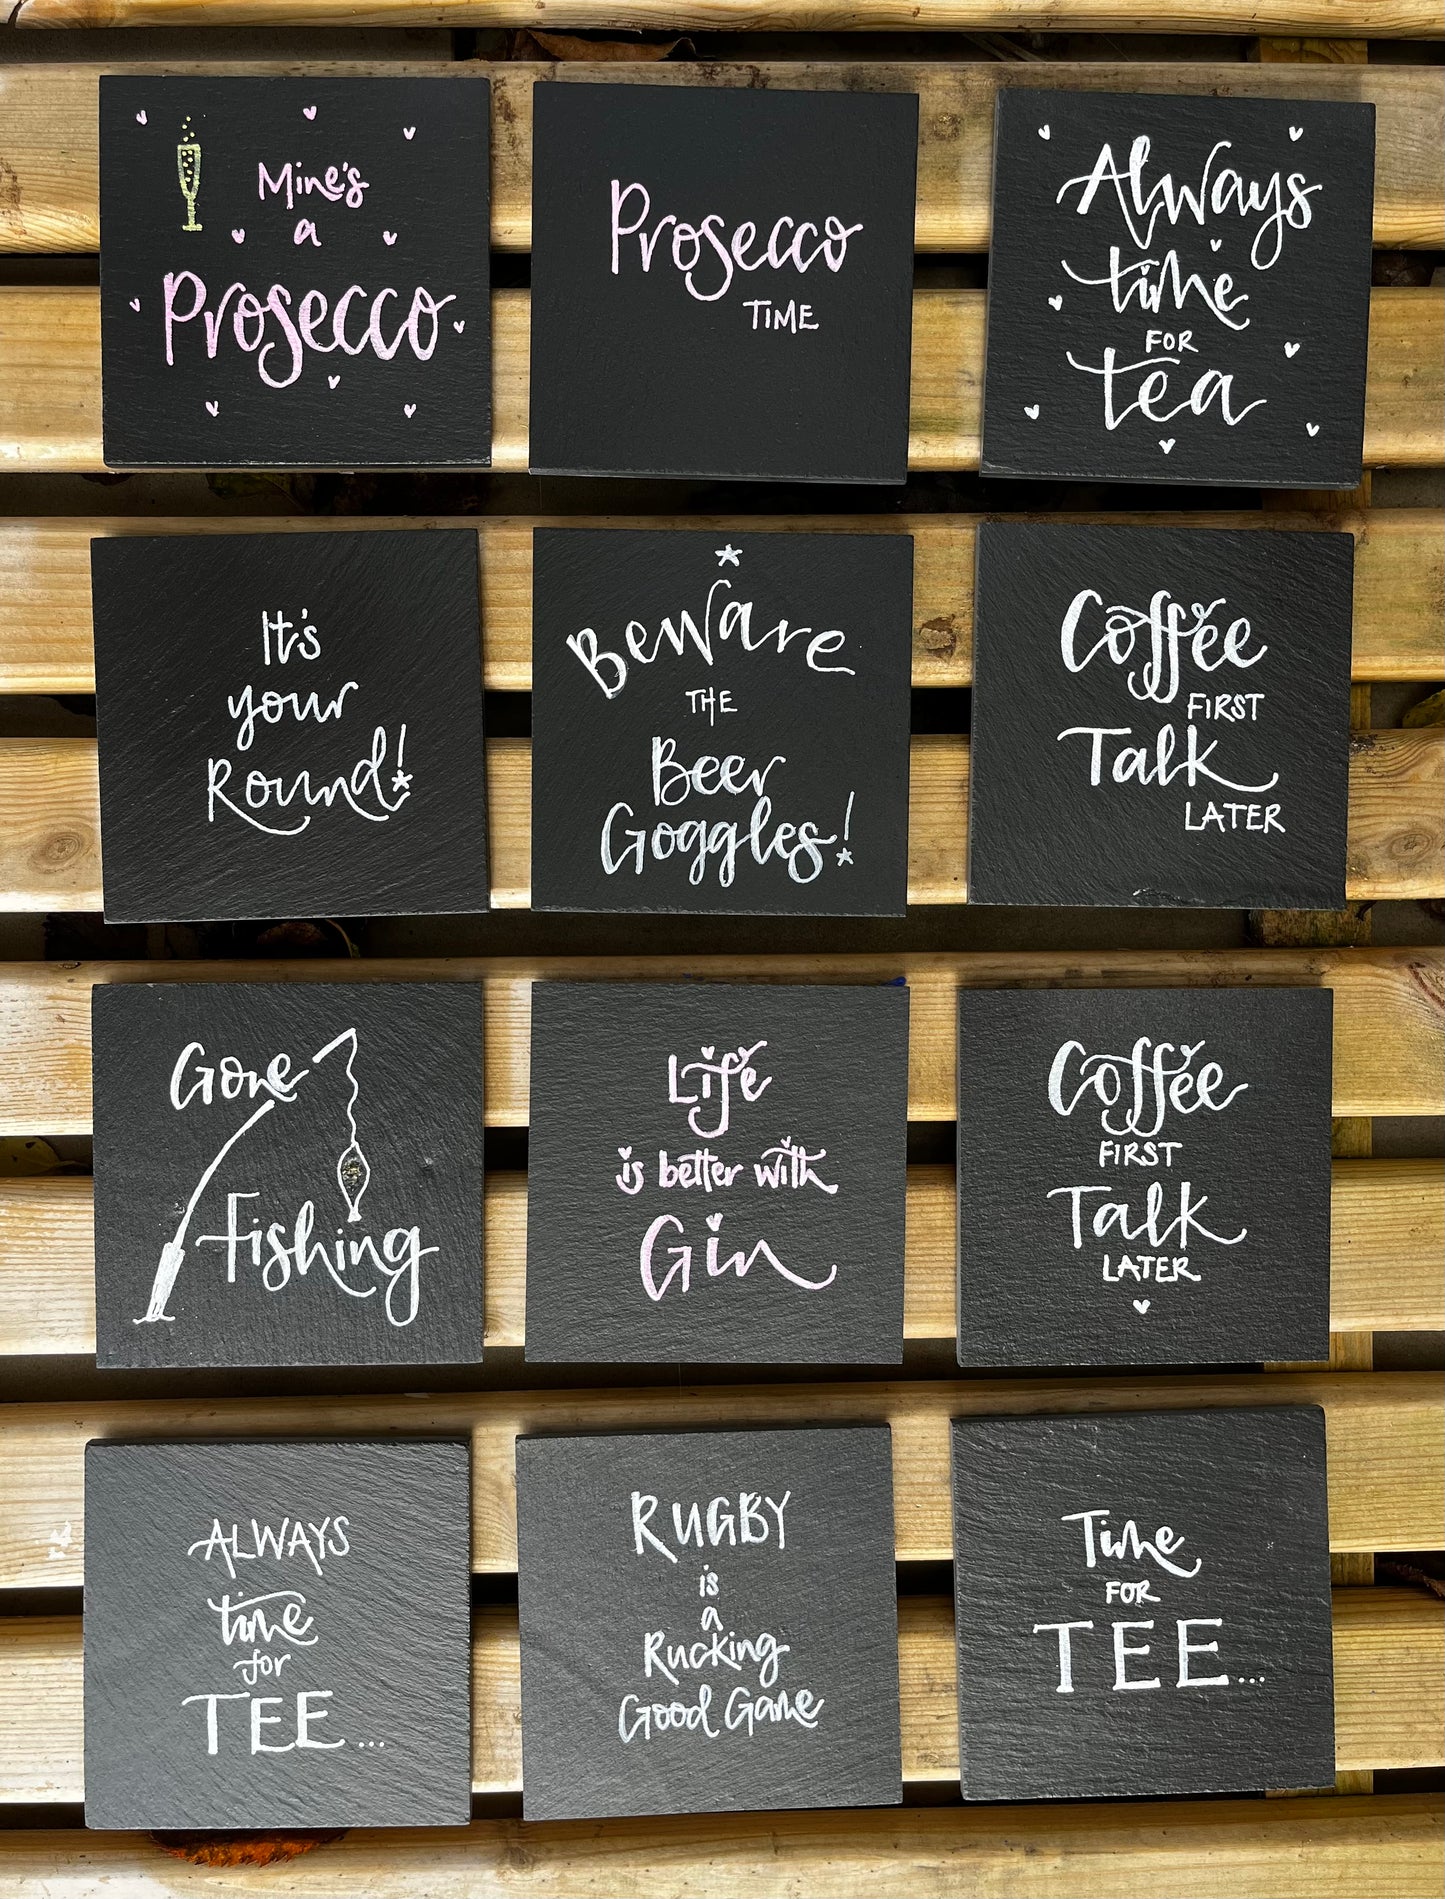 Mine's
a
Prosecco
Prosecco
TIME
Always
time
FOR
tea
It's
your
Round!
Beware
THE
Beer
Goggles!
Coffee
FIRST
Talk
LATER
Gone
Fishing
Life
is better with
Gin
Coffee
FIRST
Talk
LATER
ALWAYS
time
for
TEE...
RUGBY
is
a
Rucking
Good Game
Time
FOR
TEE...